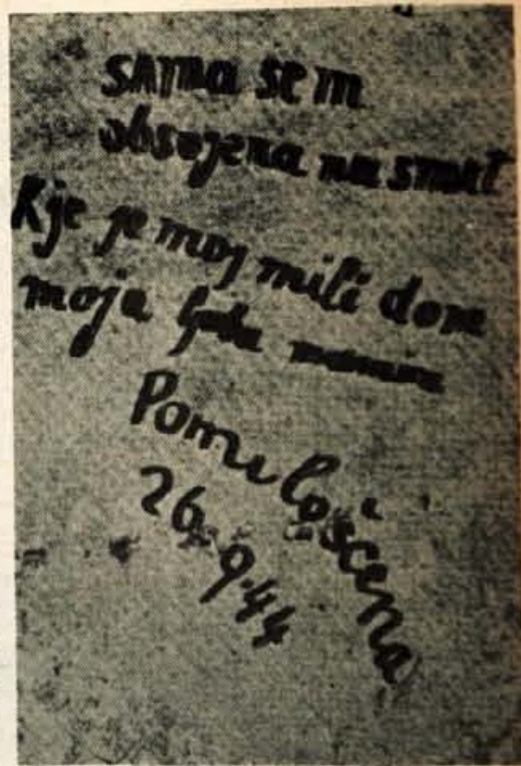 sama sem
obsojena na smrt
Kje je moj mili dom
moja ljuba mama
Pomiloščena
26.9.44